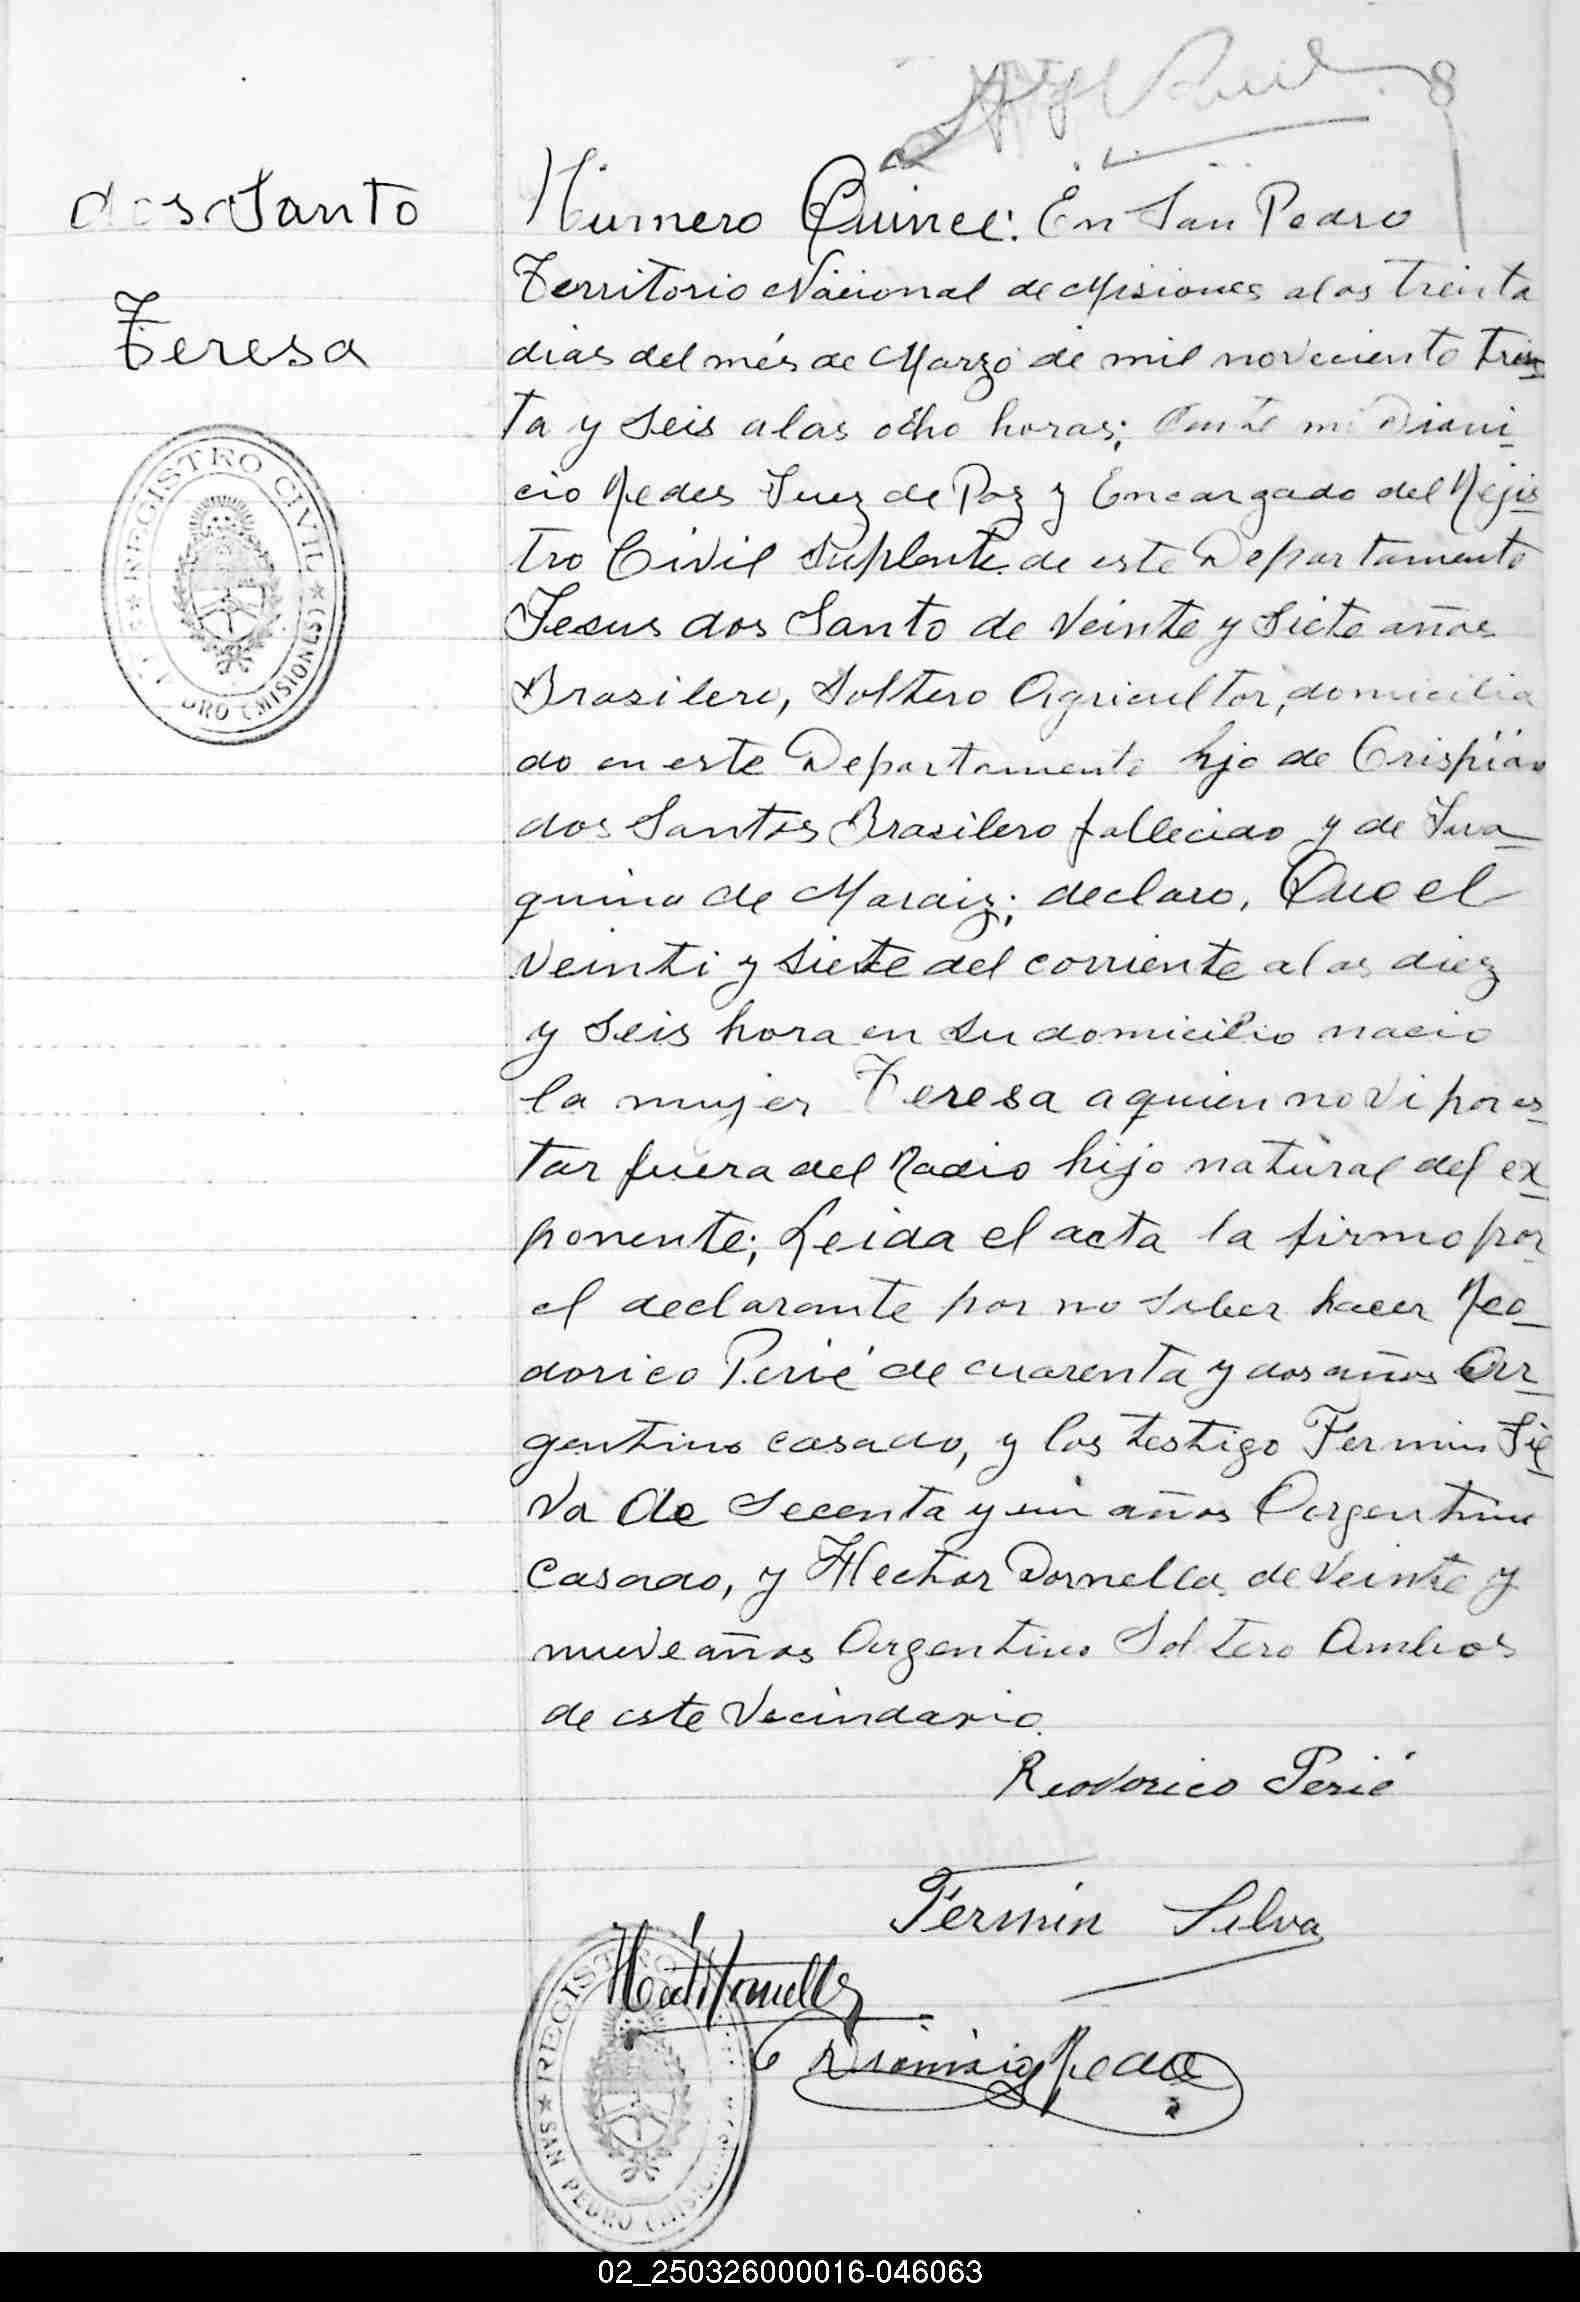 8
dos Santo
Teresa
Número Quince: En San Pedro
Territorio Nacional de Misiones a los treinta
dias del més de Marzo de mil noveciento trein-
ta y seis a las ocho horas; Ante mi Dioni-
cio Redes Juez de Paz y Encargado del Rejis-
tro Civil Suplente de este Departamento
Jesus dos Santo de Veinte y Siete años
Brasilero, Soltero Agricultor, domicilia
do en este Departamento hijo de Crispin
dos Santos Brasilero fallecido y de Jua-
quina de Moraiz; declaro, Que el
veinti y siete del corriente a las diez
y seis hora en su domicilio nacio
la mujer Teresa a quien no vi por es-
tar fuera del Radio hijo natural del ex-
ponente; Leida el acta la firmo por
el declarante por no saber hacer Reo-
dorico Perié de cuarenta y dos años Ar-
gentino casado, y los testigo Fermin Sil-
va de Secenta y un años Argentino
Casado, y Hector Dornella de Veinte y
nueve años Argentino Soltero Ambos
de este Vecindario.
Reodorico Perié
Fermin Silva
Dionisio Redes
REGISTRO CIVIL
DRO (MISIONES)
REGISTRO
SAN PEDRO (MISIONES)
02_250326000016-046063